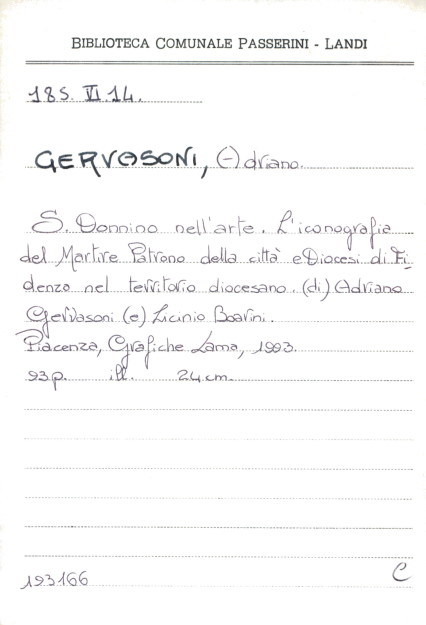 BIBLIOTECA COMUNALE PASSERINI - LANDI
18S. VI.14.
GERVASONI, Adriano.
S. Donnino nell'arte. L'iconografia
del Martire Patrono della città e Diocesi di Fi-
denza nel territorio diocesano. (di) Adriano
Gervasoni (e) Licinio Boarini.
Piacenza, Grafiche Lama, 1993.
93 p. ill. 24 cm.
193166
C